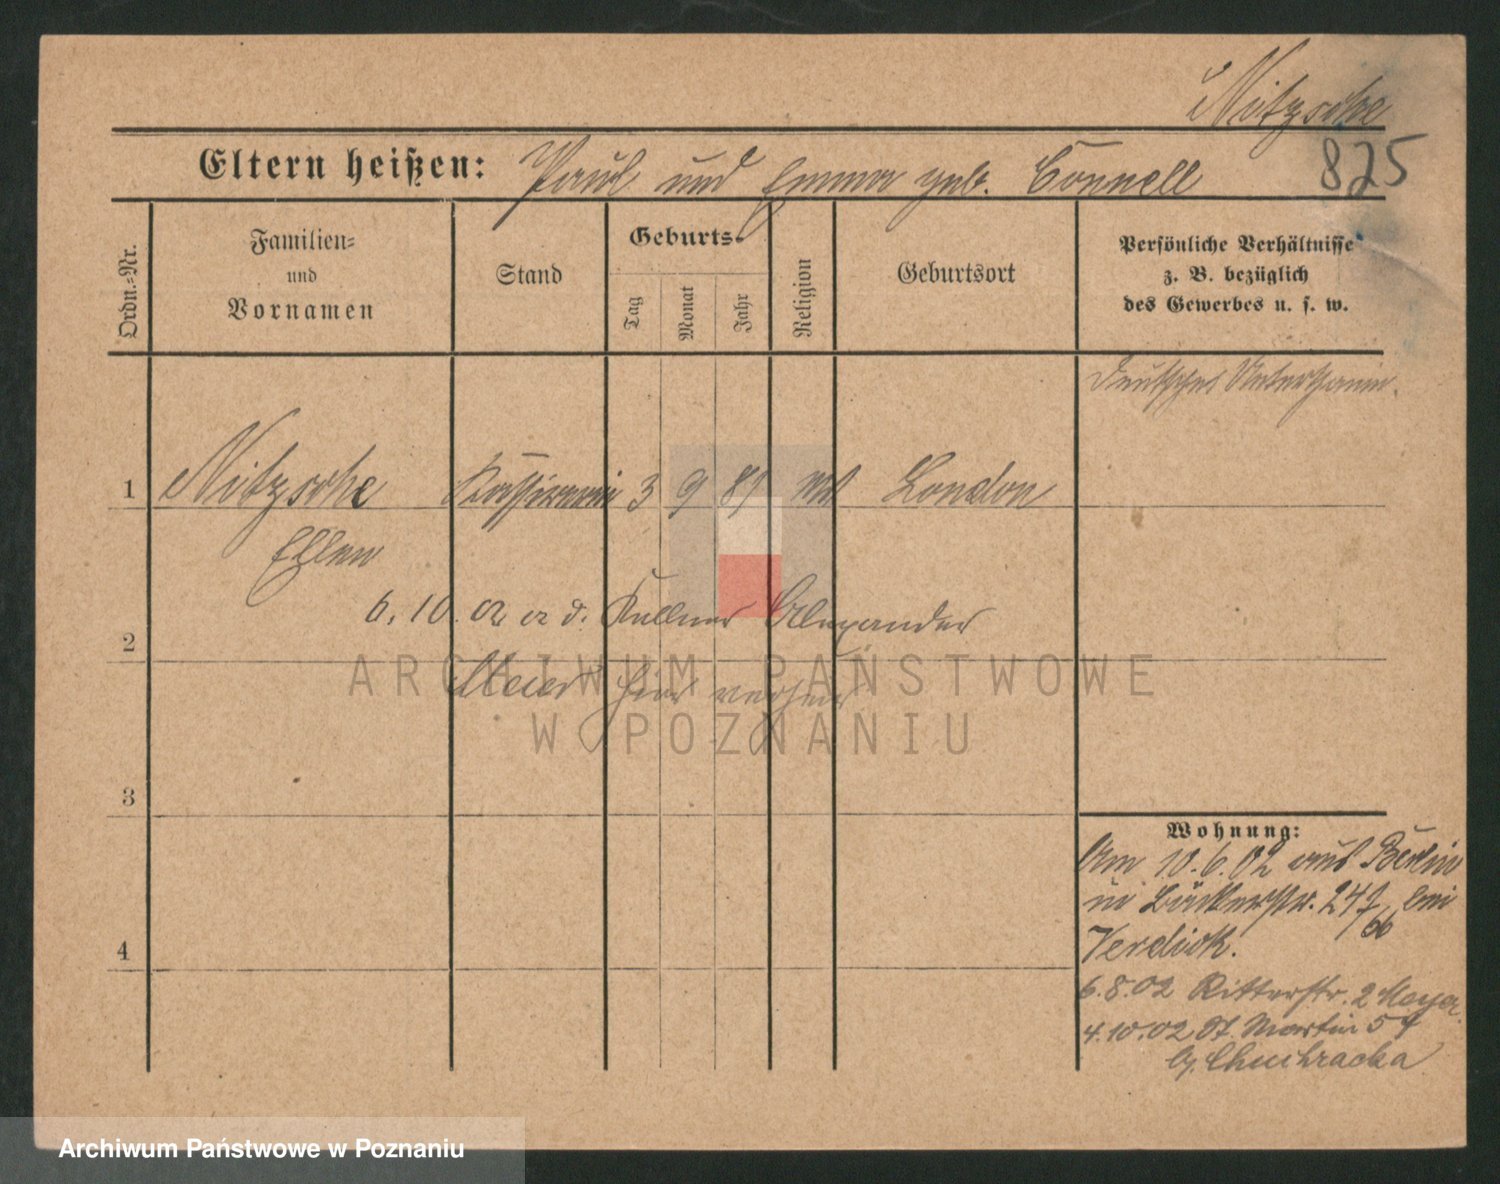 Nitzsche
825
Eltern heißen: Paul und Emma geb. Connell
Ordn.=Nr.
Familien=
und
Vornamen
Stand
Geburts=
Tag
Monat
Jahr
Religion
Geburtsort
Persönliche Verhältnisse
z. B. bezüglich
des Gewerbes u. s. w.
Deutsche Unterthanin.
1 Nitzsche Kassirerin 3 9 81 London
Ellen
6. 10. 02 d. Kellner Alexander
2
Meier hier
3
4
Wohnung:
Am 10.6.02 aus Berlin
in Bäckerstr. 24 bei
Verdick.
6.8.02 Ritterstr. 2 Meyer
4.10.02 St. Martin 54
ARCHIWUM PAŃSTWOWE
W POZNANIU
Archiwum Państwowe w Poznaniu